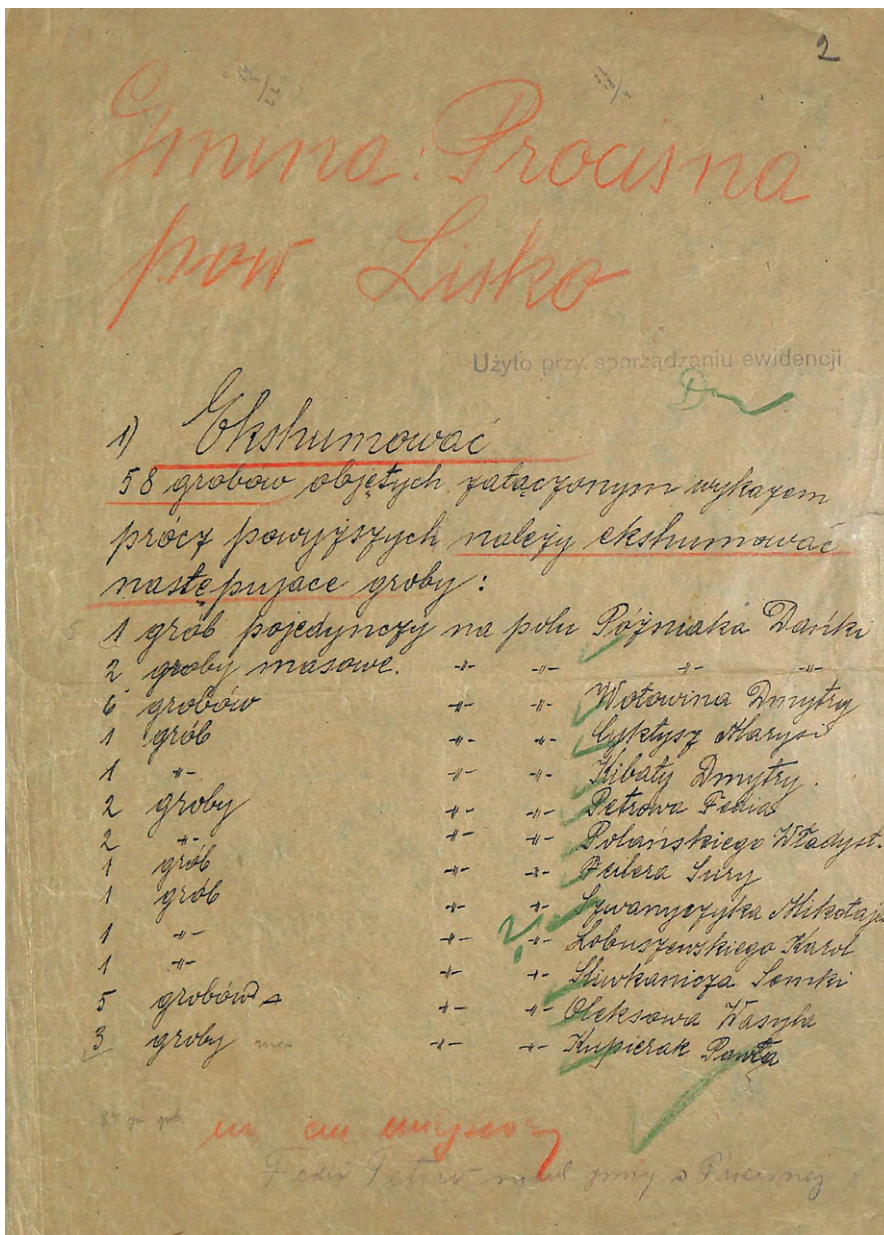 2
Gmina: Procisna
pow Lisko
Użyto przy sporządzaniu ewidencji
1) Ekshumować
58 grobów objętych załączonym wykazem
prócz powyższych należy ekshumować
następujace groby:
1 grób pojedynczy na polu Póżniaka Dańki
2 groby masowe. -"- -"- -"- -"-
6 grobów -"- -"- Wołowina Dmytry
1 grób -"- -"- Cyktysz Marysi
1 -"- -"- -"- Kibały Dmytry.
2 groby -"- -"- Petrowa Fedia
2 -"- -"- -"- Polańskiego Władysł.
1 grób -"- -"- Feilera Sury
1 grób -"- -"- Szwanyczyka Mikołaja
1 -"- -"- ? -"- Łobuszewskiego Karol
1 -"- -"- -"- Śliwkanicza Semki
5 grobów -"- -"- Oleksowa Wasyla
3 groby -"- -"- Kupierak Pawła
na
Fedia Petrów